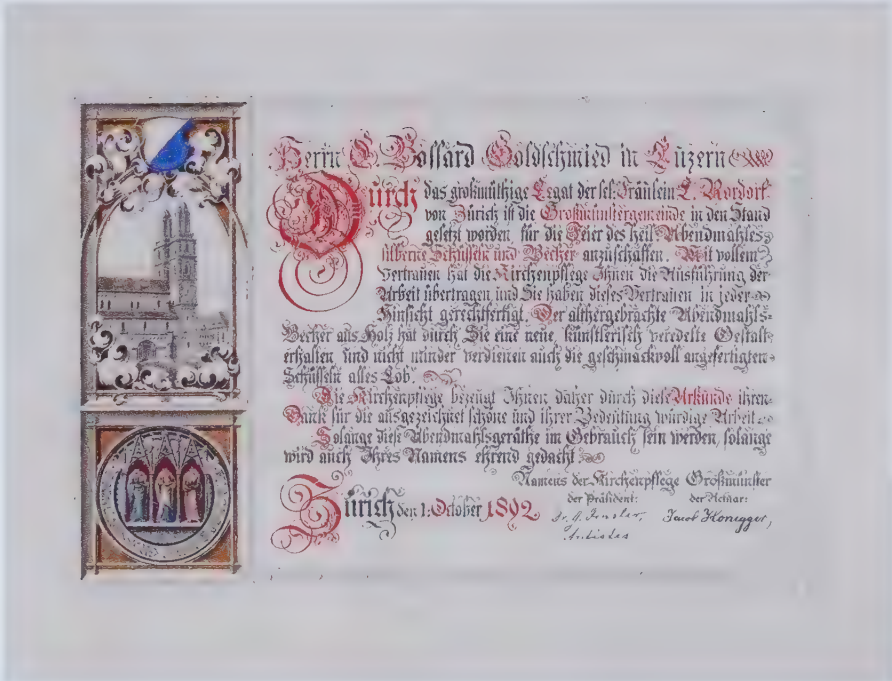 Herrn Bossard Goldschmied in Luzern
Durch das großmüthige Legat der sel. Fräulein L. Nordorf
von Zürich ist die Großmünstergemeinde in den Stand
gesetzt worden, für die Feier des heil. Abendmahles
silberne Schüsseln und Becher anzuschaffen. Mit vollem
Vertrauen hat die Kirchenpflege Ihnen die Ausführung der
Arbeit übertragen und Sie haben dieses Vertrauen in jeder
Hinsicht gerechtfertigt. Der althergebrachte Abendmahls-
Becher aus Holz hat durch Sie eine neue, künstlerisch veredelte Gestalt
erhalten und nicht minder verdienen auch die geschmackvoll angefertigten
Schüsseln alles Lob.
Die Kirchenpflege bezeugt Ihnen daher durch diese Urkunde ihren
Dank für die ausgezeichnet schöne und ihrer Bedeutung würdige Arbeit.
Solange diese Abendmahlsgeräthe im Gebrauch sein werden, solange
wird auch Ihres Namens ehrend gedacht.
Namens der Kirchenpflege Großmünster
der Präsident: der Actuar:
Zürich den 1. October 1892
Jacob Honegger,